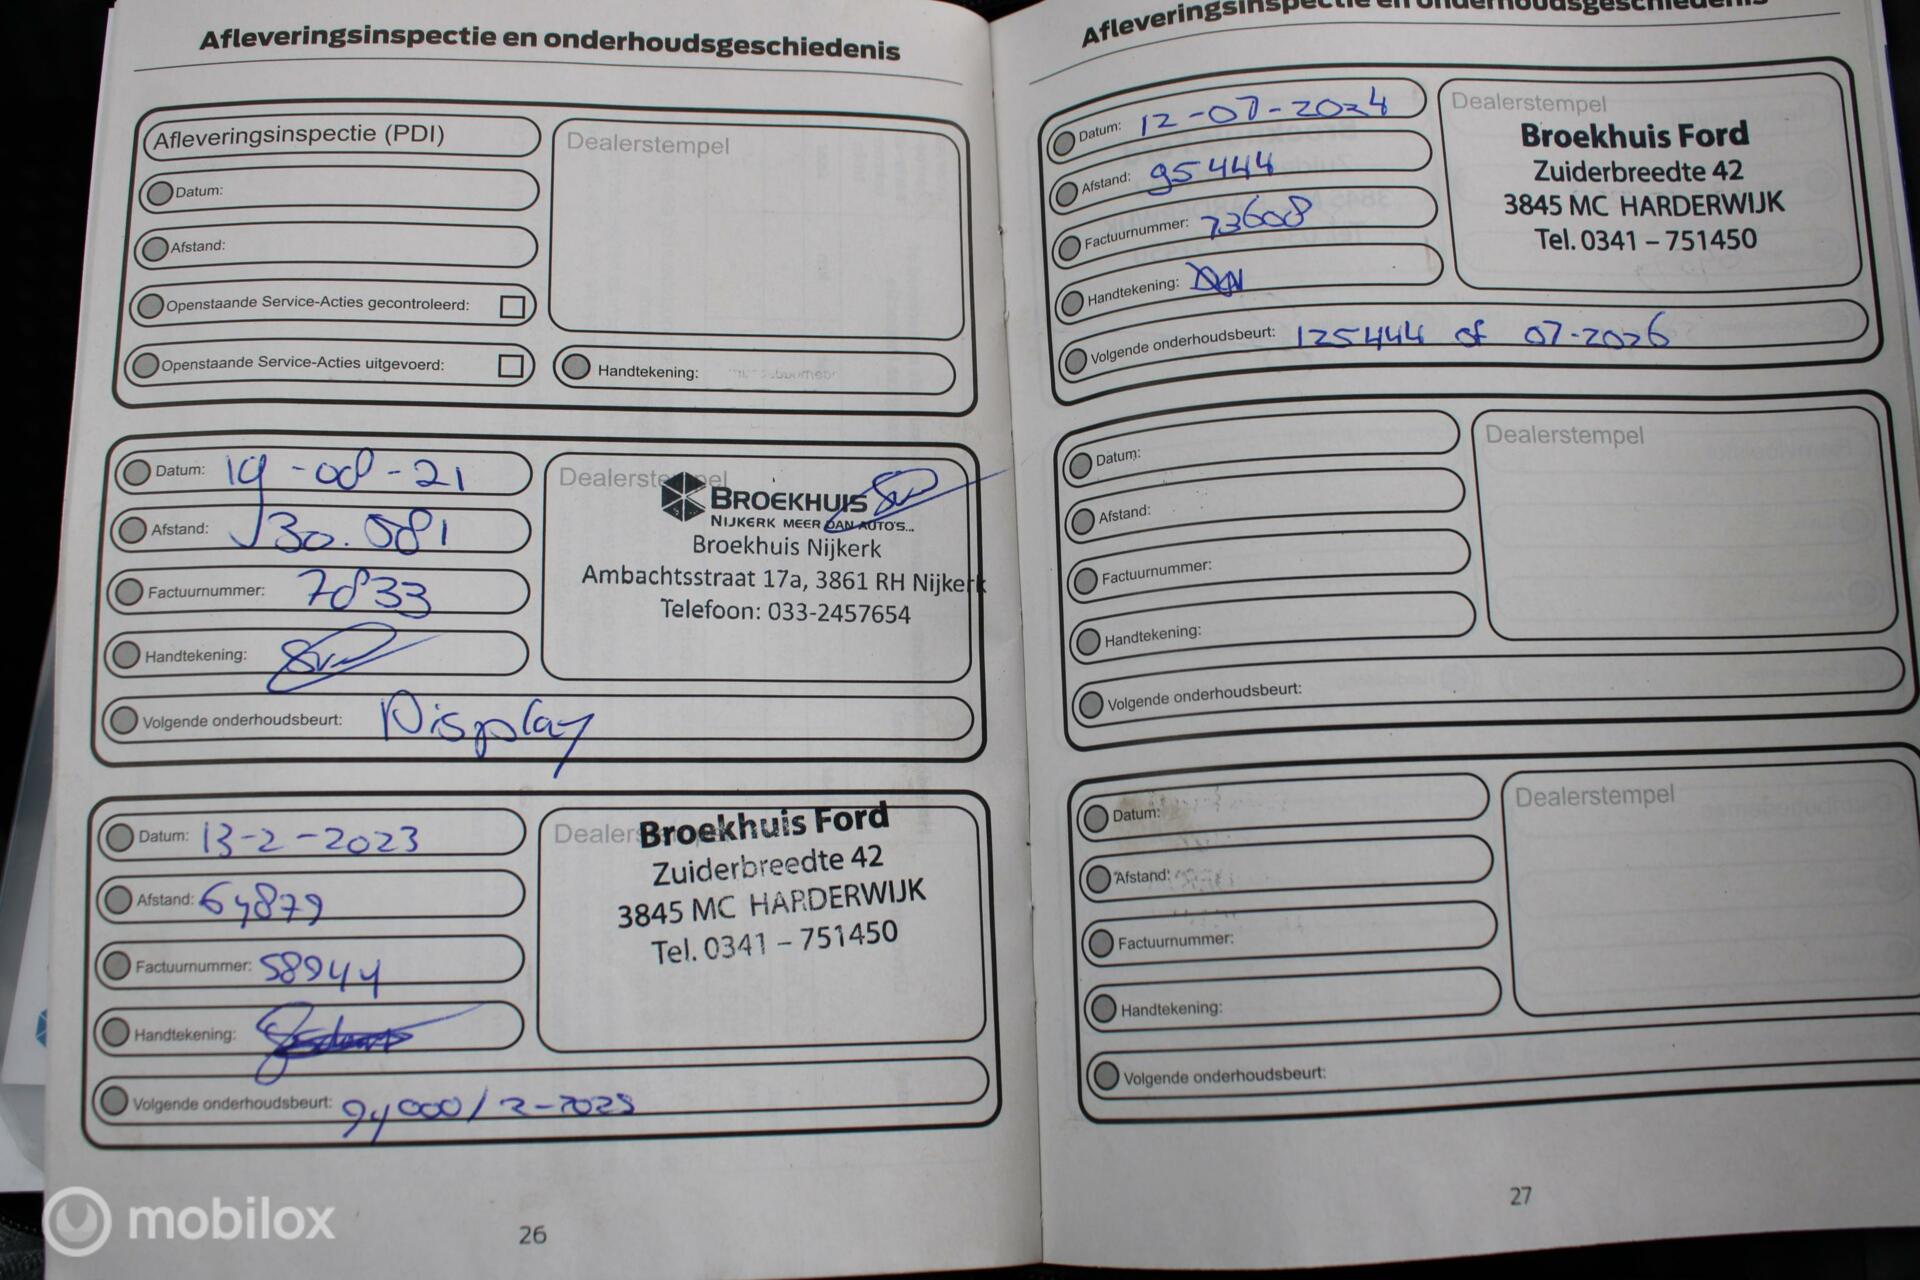 Afleveringsinspectie en onderhoudsgeschiedenis
Afleveringsinspectie (PDI)
Datum:
Afstand:
Openstaande Service-Acties gecontroleerd:
Openstaande Service-Acties uitgevoerd:
Dealerstempel
Handtekening:
Datum: 19-08-21
Afstand: 30.081
Factuurnummer: 7833
Handtekening:
Volgende onderhoudsbeurt: Display
Dealerstempel
BROEKHUIS
NIJKERK MEER DAN AUTO'S...
Broekhuis Nijkerk
Ambachtsstraat 17a, 3861 RH Nijkerk
Telefoon: 033-2457654
Datum: 13-2-2023
Afstand: 64879
Factuurnummer: 58944
Handtekening:
Volgende onderhoudsbeurt: 94000/2-2025
Broekhuis Ford
Zuiderbreedte 42
3845 MC HARDERWIJK
Tel. 0341 – 751450
26
Afleveringsinspectie en onderhoudsgeschiedenis
Datum: 12-07-2024
Afstand: 95444
Factuurnummer: 73608
Handtekening:
Volgende onderhoudsbeurt: 125444 of 07-2026
Dealerstempel
Broekhuis Ford
Zuiderbreedte 42
3845 MC HARDERWIJK
Tel. 0341 – 751450
Datum:
Afstand:
Factuurnummer:
Handtekening:
Volgende onderhoudsbeurt:
Dealerstempel
Datum:
Afstand:
Factuurnummer:
Handtekening:
Volgende onderhoudsbeurt:
Dealerstempel
27
mobilox